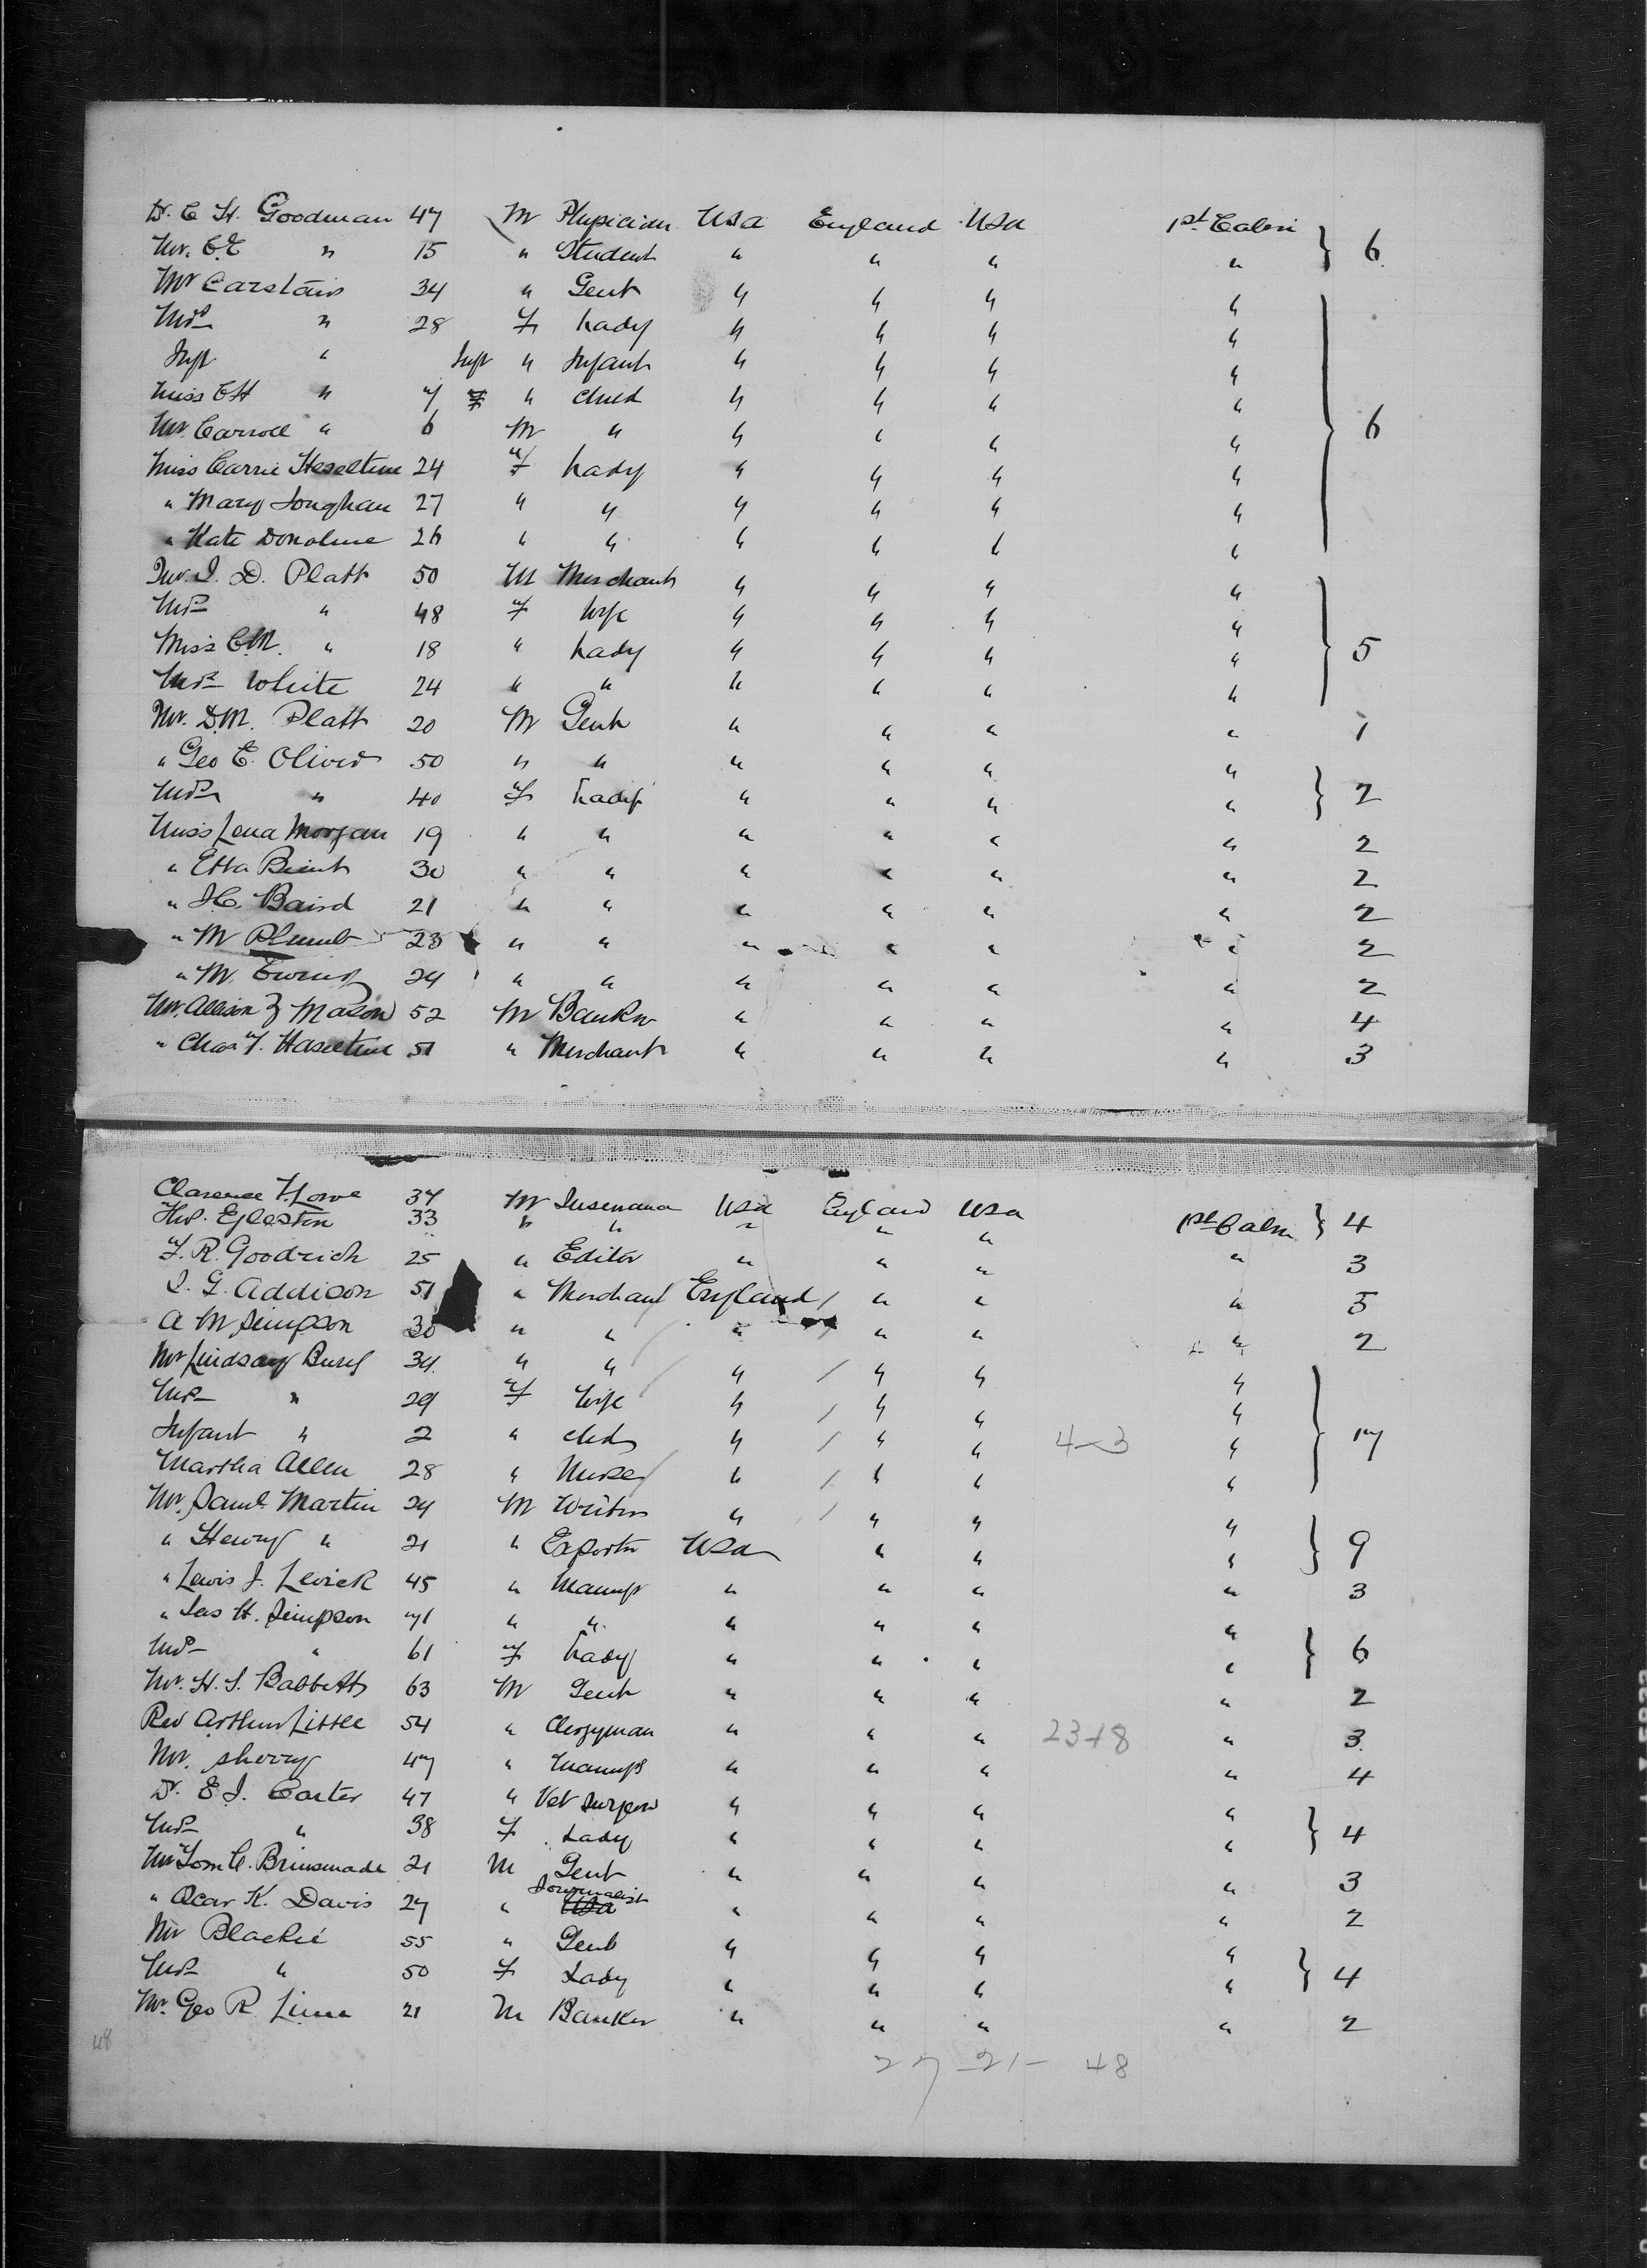 Dr. C. H. Goodman 47 M Physician USA England USA 1st Cabin } 6
Mr. C.E " 15 " Student " " " "
Mr Carstairs 34 " Gent " " " "
Mrs " 28 F Lady " " " "
Inft " Inft " Infant " " " "
Miss EH " 7 F " Child " " " "
Mr. Carroll " 6 M " " " " " } 6
Miss Carrie Heseltine 24 F Lady " " " "
" Mary 27 " " " " " "
" Kate Donohue 26 " " " " " "
Mr. I. D. Platt 50 M Merchant " " " "
Mrs " 48 F Wife " " " "
Miss C.M. " 18 " Lady " " " " } 5
Mrs White 24 " " " " " "
Mr. D.M. Platt 20 M Gent " " " " 1
" Geo E. Oliver 50 " " " " " "
Mrs " 40 F Lady " " " " } 2
Miss Lena Morgan 19 " " " " " " 2
" Etta 30 " " " " " " 2
" Baird 21 " " " " " " 2
" M Plumb 23 " " " " " " 2
" M. Ewing 24 " " " " " " 2
Mr. Allison Z Mason 52 M Banker " " " " 4
" Chas F. Haseltine 51 " Merchant " " " " 3
Clarence F. Lowe 37 M Insurance USA England USA 1st Cabin } 4
Egleston 33 " " " " "
F. R. Goodrich 25 " Editor " " " " 3
I. G. Addison 51 " Merchant England / " " " 5
A M Simpson 30 " " " / " " " 2
Mr Lindsay Bury 34 " " " / " " "
Mrs " 29 F Wife " / " " "
Infant " 2 " child " / " " 4-3 " } 17
Martha Allen 28 " Nurse " / " " "
Mr. Saml Martin 24 M Writer " / " " "
" Henry " 21 " Exporter USA " " " } 9
" Lewis J. Levick 45 " Manuf " " " " 3
" Jas H. Simpson 71 " " " " " "
Mrs " 61 F Lady " " " " } 6
Mr. H. S. Babbitt 63 M Gent " " " " 2
Rev Arthur Little 54 " Clergyman " " " 23+8 " 3
Mr. Sherry 47 " Manuf " " " " 4
Dr. E. J. Carter 47 " Vet Surgeon " " " "
Mrs " 38 F Lady " " " " } 4
Mr Tom C. Brinsmade 21 M Gent " " " " 3
" Oscar K. Davis 27 " Journalist " " " " 2
Mr Blackie 55 " Gent " " " "
Mrs " 50 F Lady " " " " } 4
Mr. Geo R. 21 M Banker " " " " 2
48
27 - 21 - 48